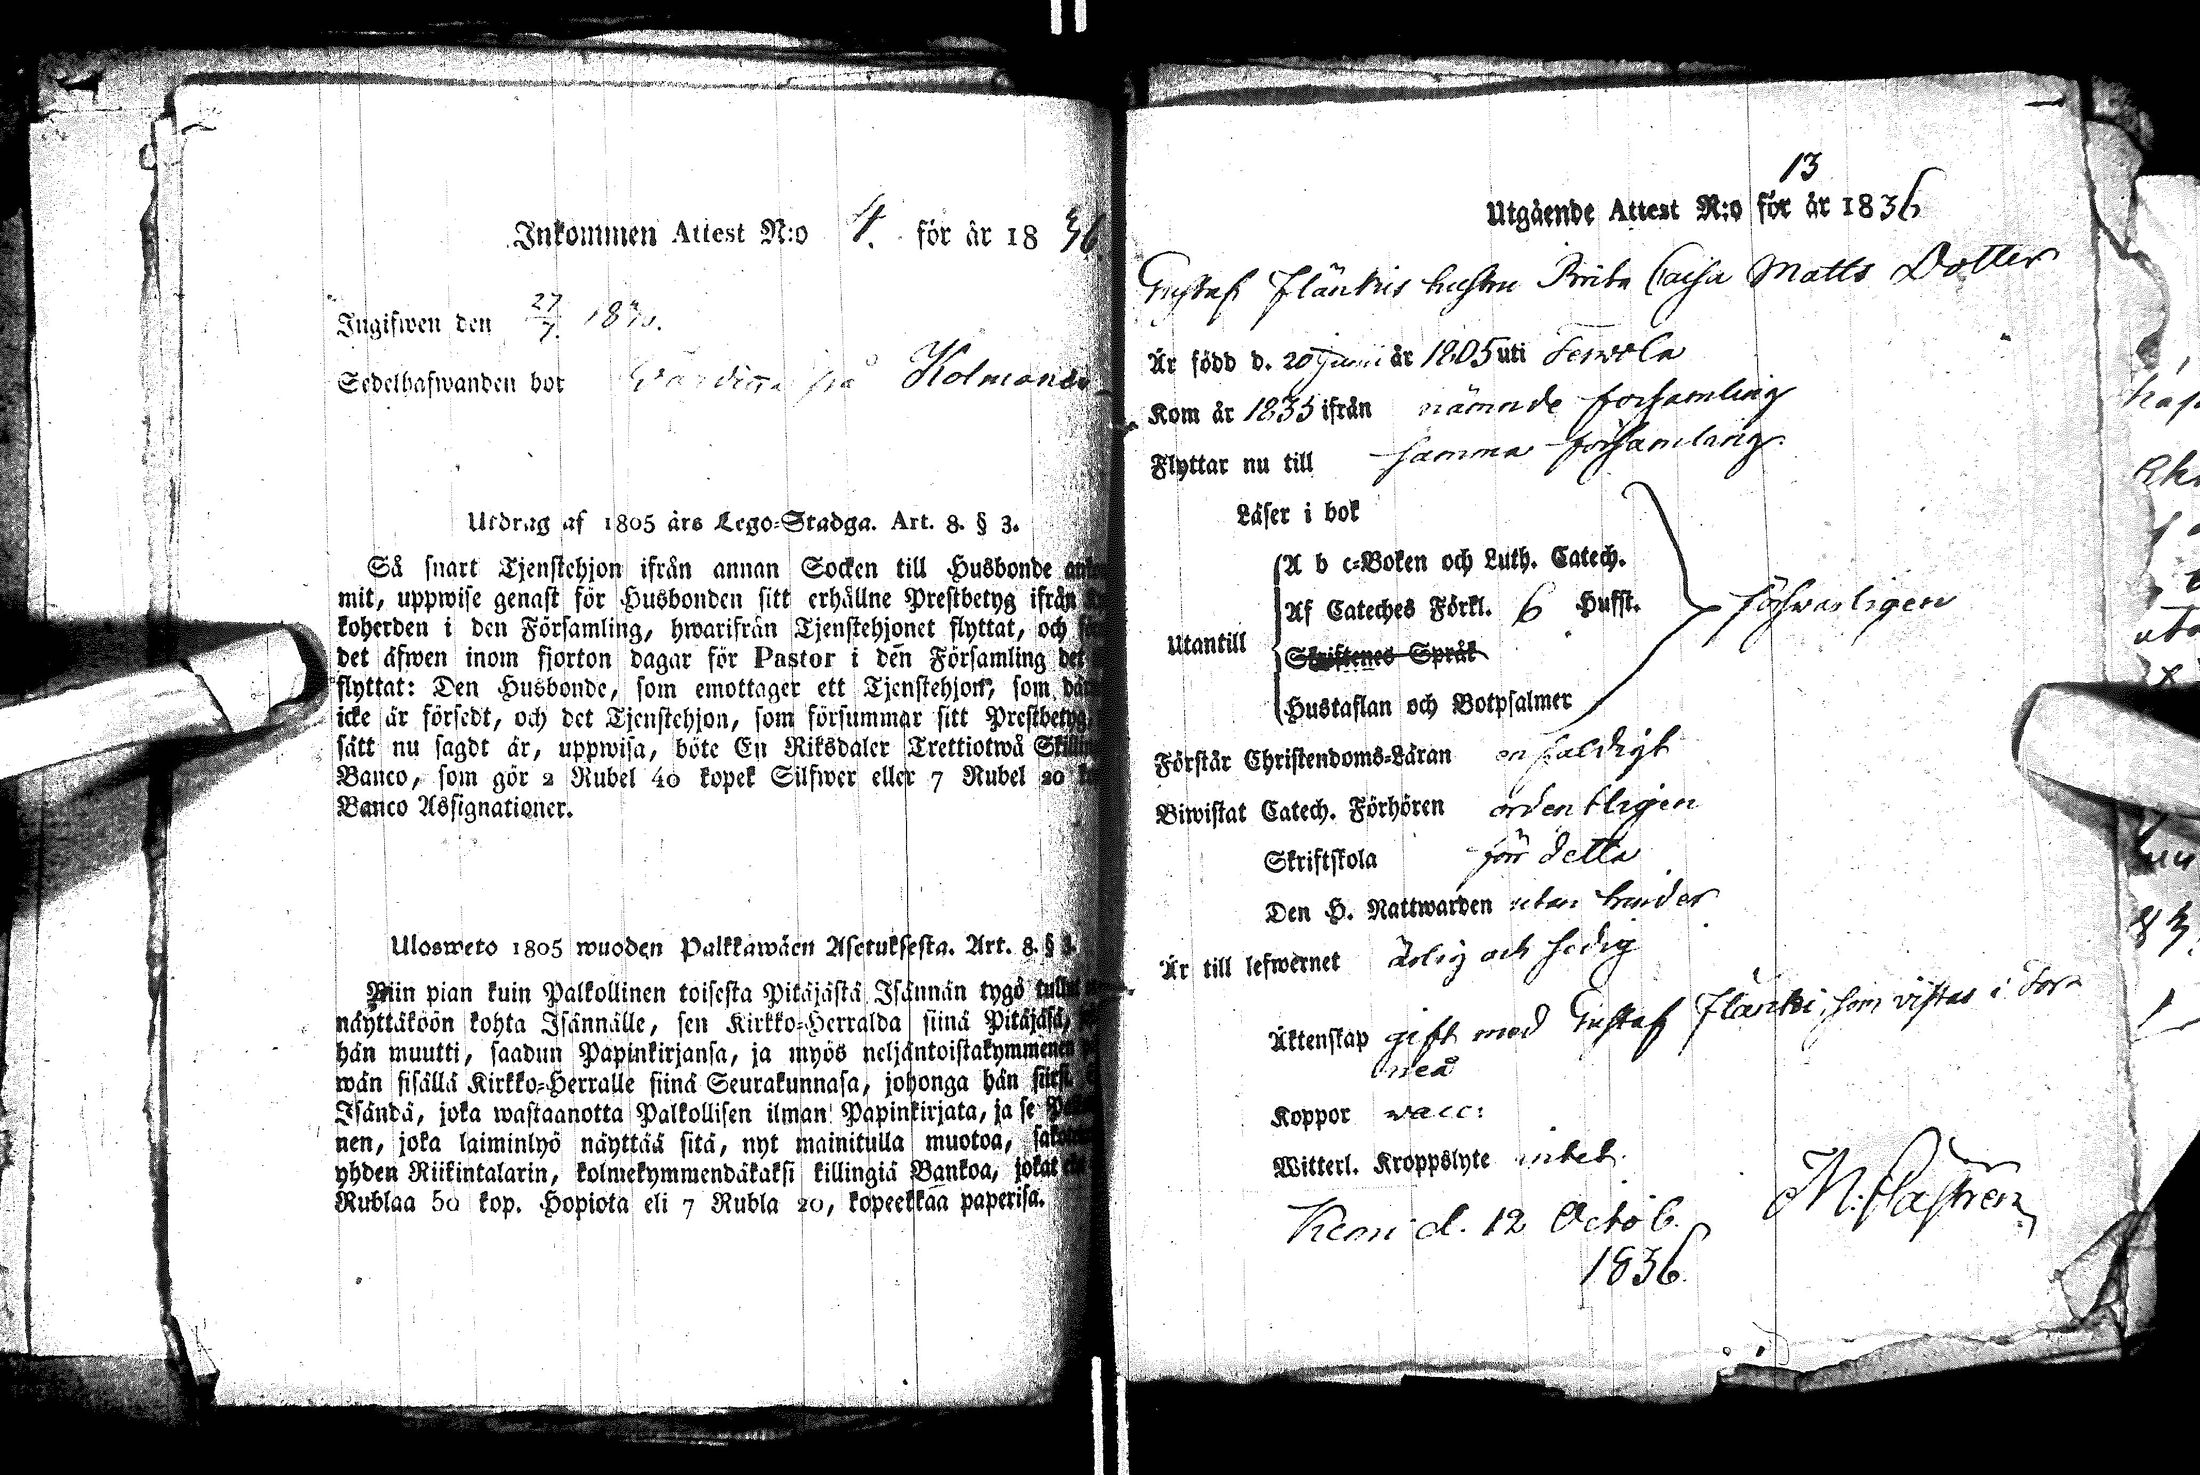 Inkommen Attest N:o 4. för år 1836.
Ingifwen den 27/7. 18
Sedelhafwanden bor från Kolmonen
Utdrag af 1805 års Lego-Stadga. Art. 8. § 3.
Så snart Tjenstehjon ifrån annan Socken till Husbonde
mit, uppwise genast för Husbonden sitt erhållne Prestbetyg ifrån
koherden i den Församling, hwarifrån Tjenstehjonet flyttat, och
det äfwen inom fjorton dagar för Pastor i den Församling det
flyttat: Den Husbonde, som emottager ett Tjenstehjon, som
icke är försedt, och det Tjenstehjon, som försummar sitt Prestbetyg,
sätt nu sagdt är, uppwisa, böte En Riksdaler Trettiotwå
Banco, som gör 2 Rubel 40 kopek Silfwer eller 7 Rubel 20
Banco Assignationer.
Ulosweto 1805 wuoden Palkkawäen Asetuksesta. Art. 8. § 3.
Niin pian kuin Palkollinen toisesta Pitäjästä Isännän tygö
näyttäköön kohta Isännälle, sen Kirkko-Herralda siinä Pitäjäsä,
hän muutti, saadun Papinkirjansa, ja myös neljäntoistakymmenen
wän sisällä Kirkko-Herralle siinä Seurakunnasa, johonga hän
Isändä, joka wastaanotta Palkollisen ilman Papinkirjata, ja se
nen, joka laiminlyö näyttää sitä, nyt mainitulla muotoa,
yhden Riikintalarin, kolmekymmendäkaksi killingiä Bankoa, jokat
Rublaa 50 kop. Hopiota eli 7 Rubla 20, kopeekkaa paperisa.
13
Utgående Attest N:o för år 1836
Gustaf Flänkis hustru Brita Caisa Matts Dotter
Är född d. 20 Junii år 1805 uti Terwola
Kom år 1835 ifrån nämnde församling
Flyttar nu till samma församling.
Läser i bok
A b c-Boken och Luth. Catech.
Utantill Af Cateches Förkl. 6 Hufst. förswarligen
Skriftenes Språk
Hustaflan och Botpsalmer
Förstår Christendoms-Läran enfaldigt
Biwistat Catech. Förhören ordentligen
Skriftskola förr detta
Den H. Nattwarden utan hinder
Är till lefwernet ärlig och sedig
Äktenskap gift med Gustaf Flänki, som vistas i Tor
neå
Koppor vacc:
Witterl. Kroppslyte intet.
Kemi d. 12 Octob. M: Castren
1836.